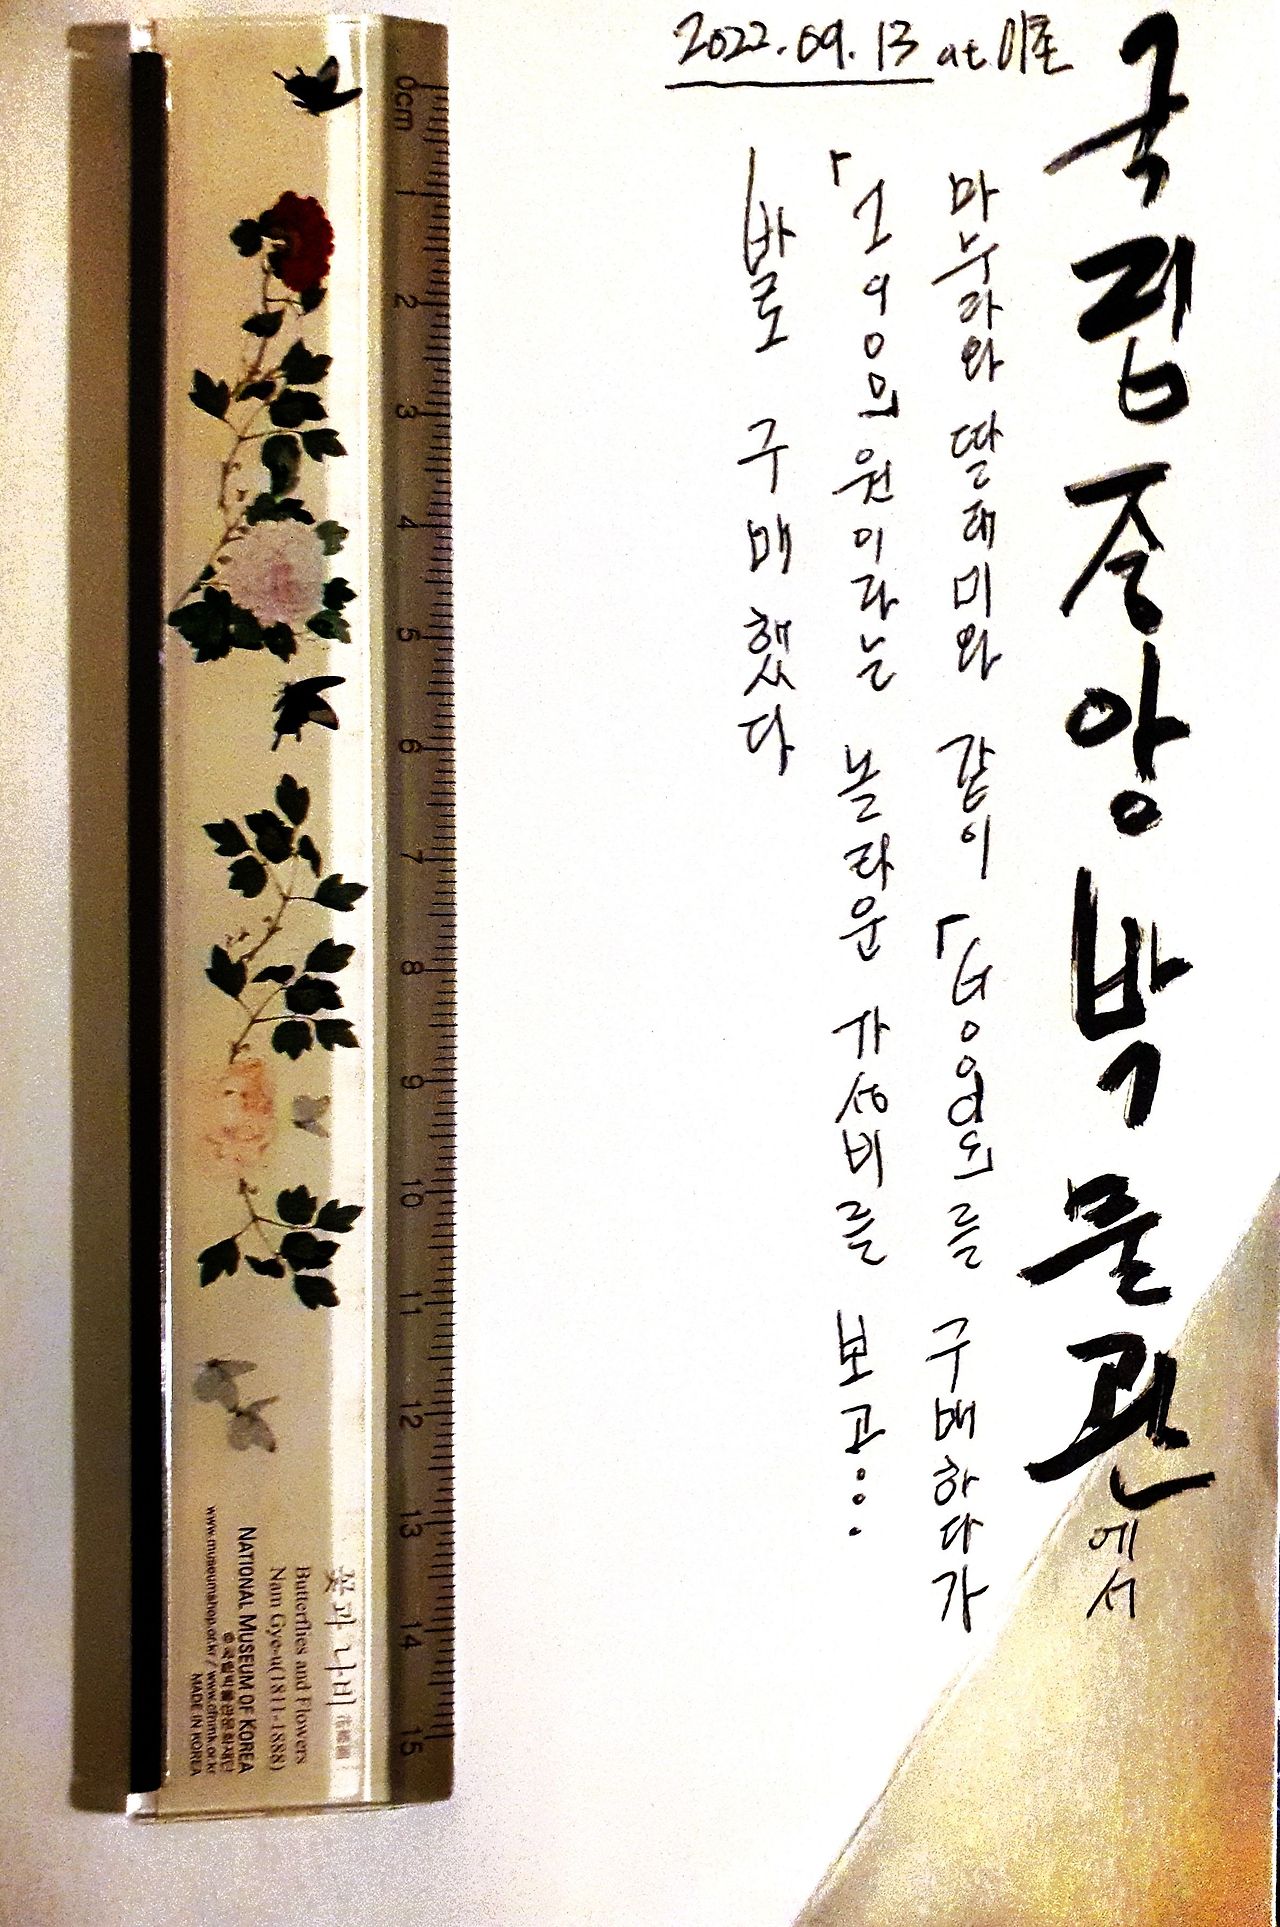 2022.09.13 at 이촌
국립중앙박물관에서
마누라와 딸래미와 같이 「Goods」를 구매하다가
「1,900」원이라는 놀라운 가성비를 보고...
바로 구매했다
0cm 1 2 3 4 5 6 7 8 9 10 11 12 13 14 15
꽃과 나비
Butterflies and Flowers
Nam Gye-u(1811-1888)
NATIONAL MUSEUM OF KOREA
©국립박물관문화재단
www.museumshop.or.kr / www.cfnmk.or.kr
MADE IN KOREA